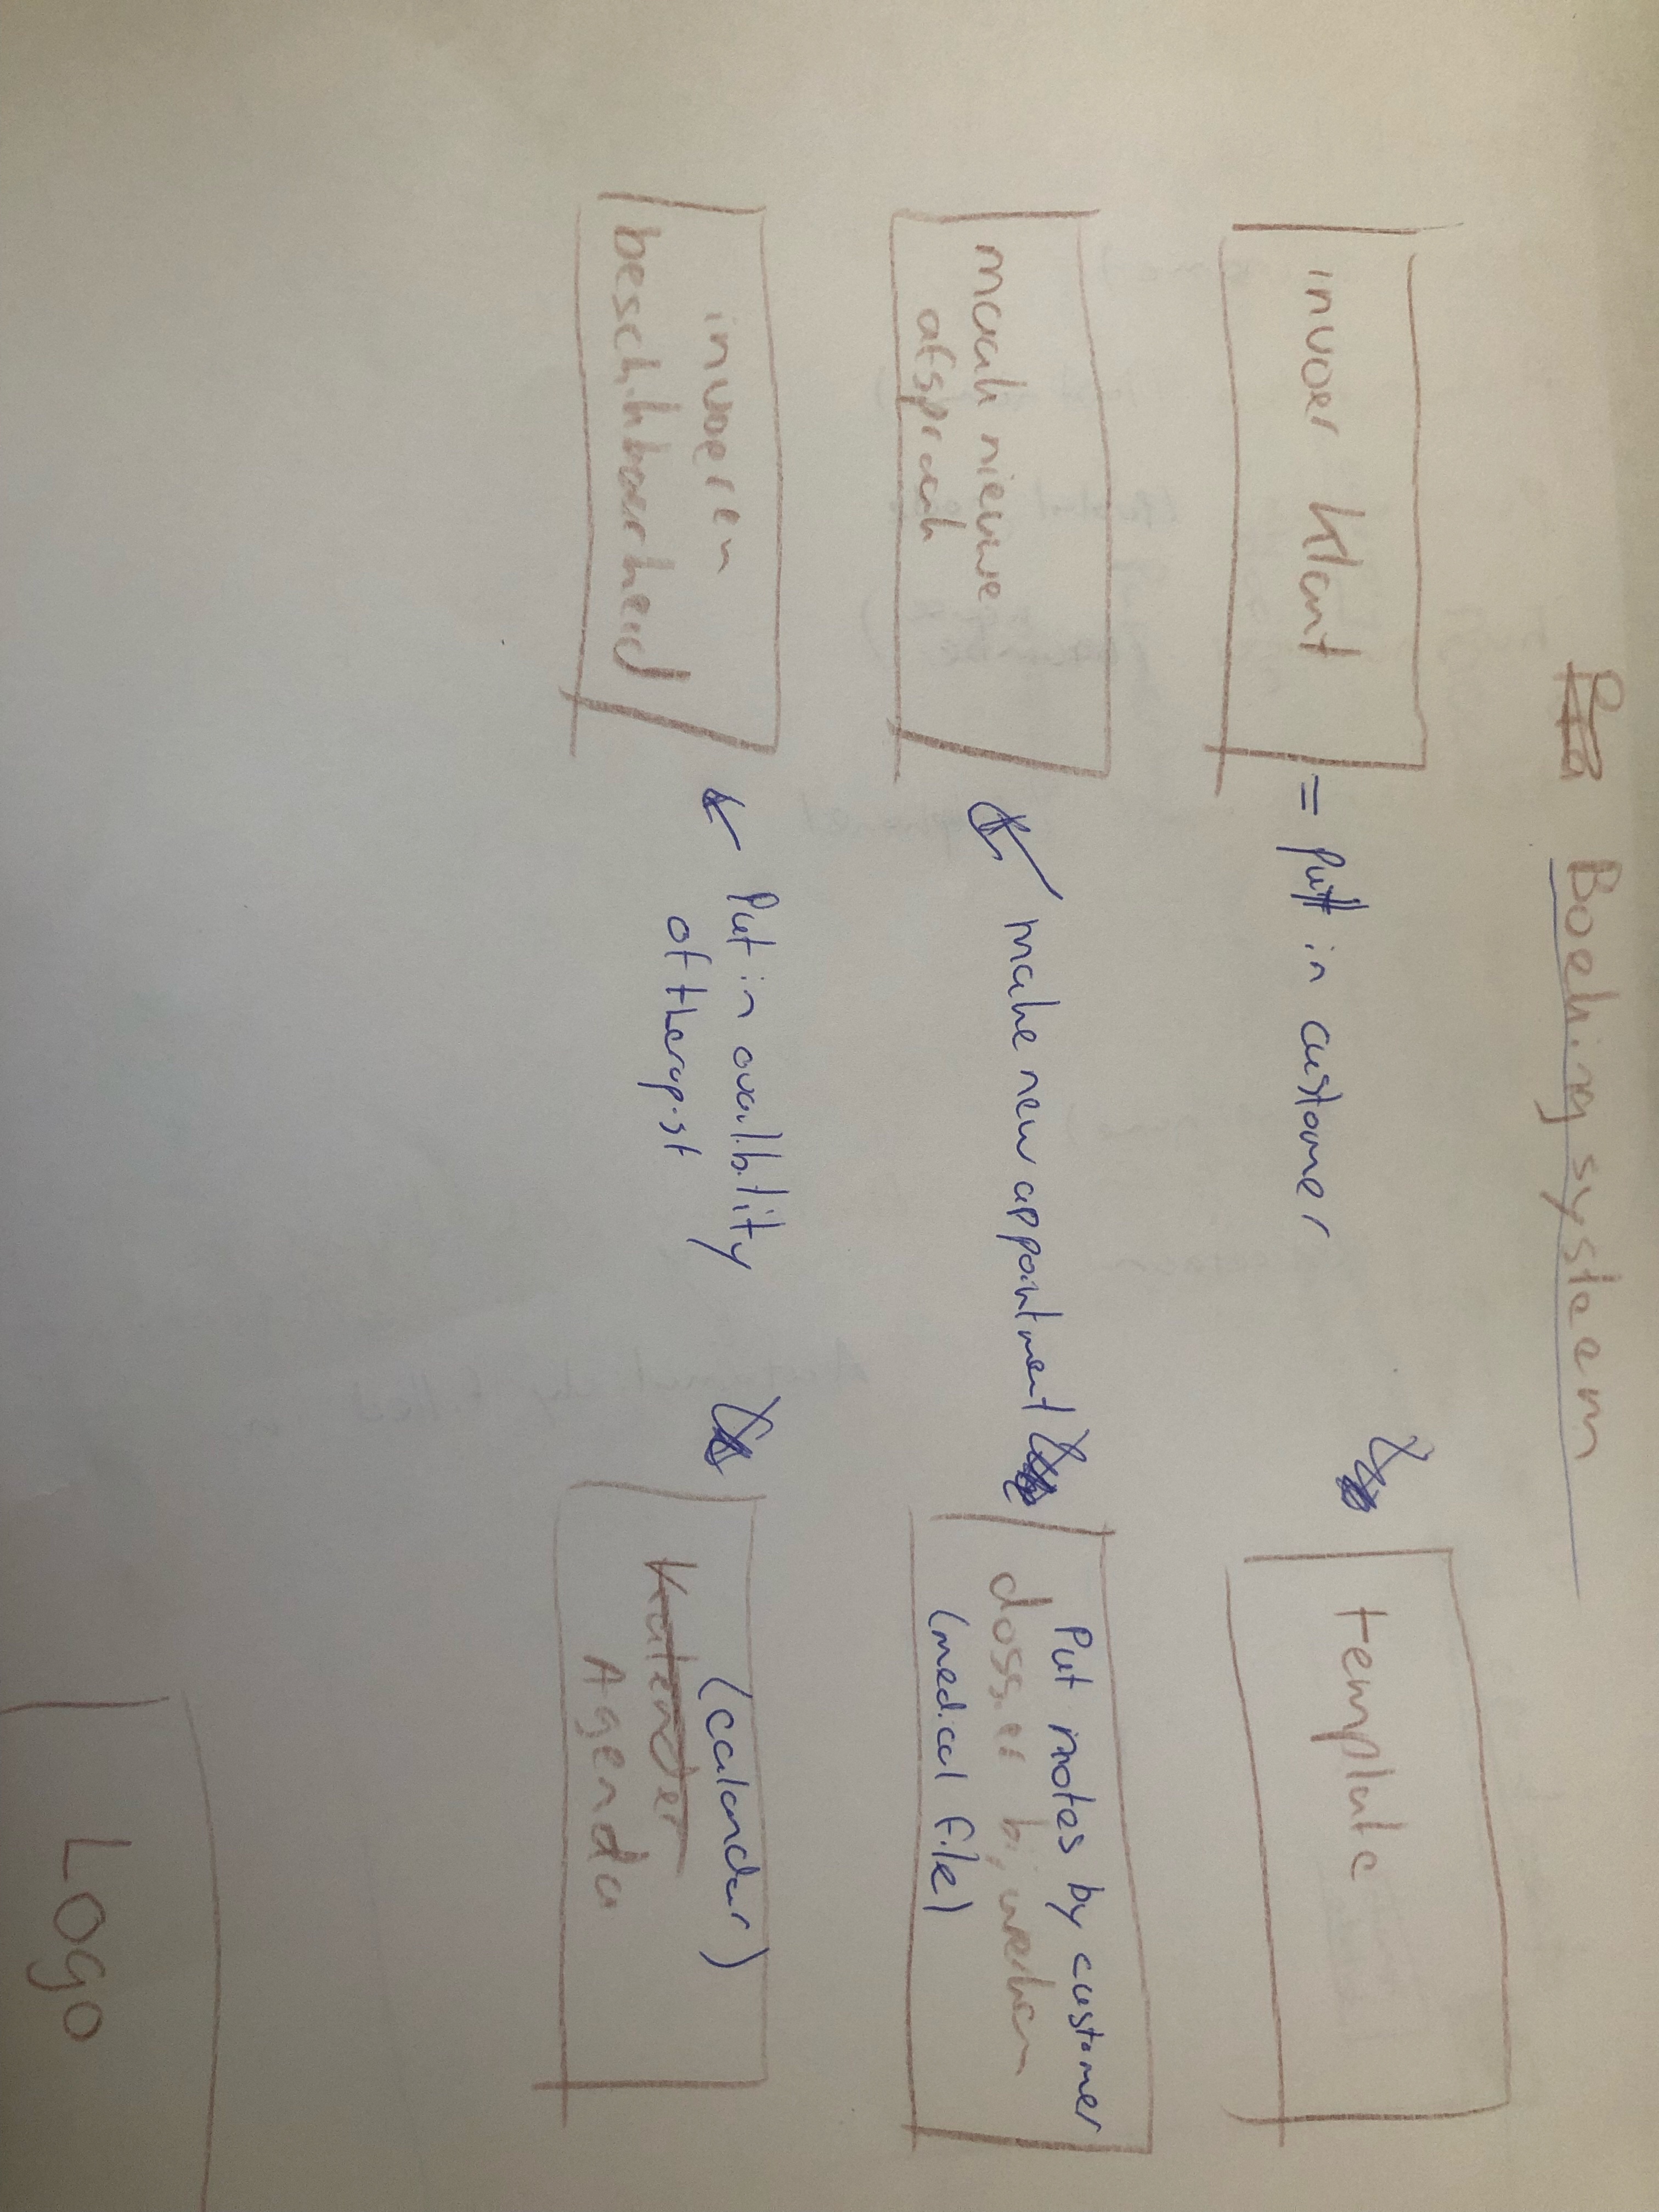 Boeking systeem
invoer klant
= put in customer
template
maak nieuwe
afspraak
make new appointment
Put notes by customer
dossier bijwerken
(medical file)
invoeren
beschikbaarheid
Put in availbility
of therapist
(calander)
Kalender
Agenda
Logo